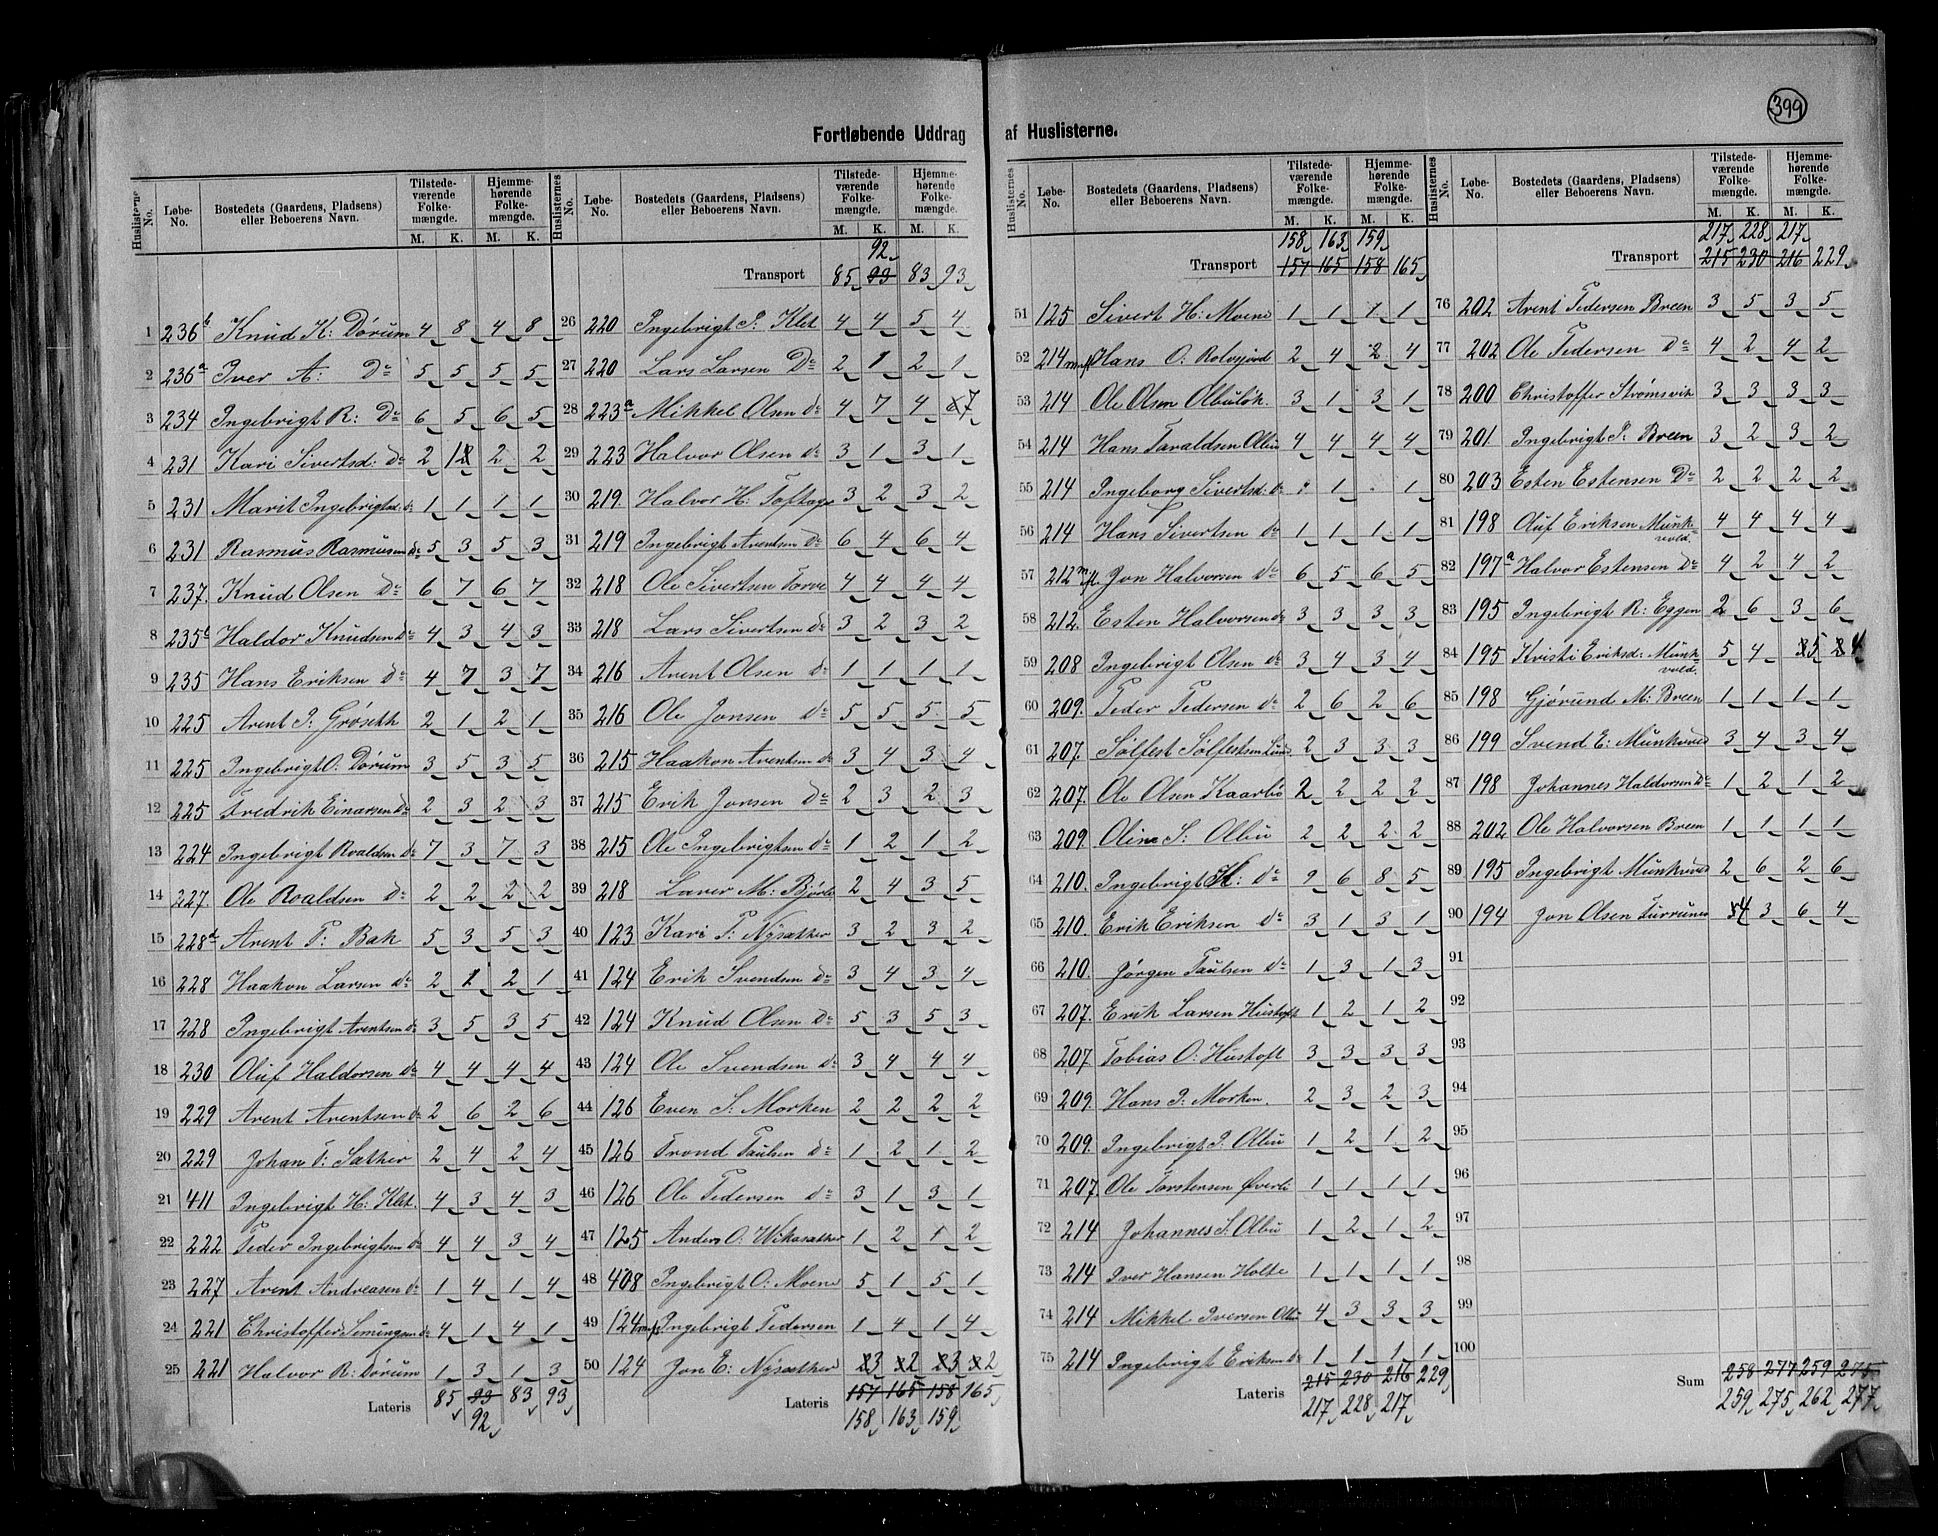 399
Fortløbende Uddrag af Huslisterne.
Huslisternes No. Løbe-No. Bostedets (Gaardens, Pladsens) eller Beboerens Navn. Tilstedeværende Folkemængde. Hjemmehørende Folkemængde.
M. K. M. K.
1 236b Knud K: Dørum 4 8 4 8
2 236a Iver A: Do 5 5 5 5
3 234 Ingebrigt R: Do 6 5 6 5
4 231 Kari Sivertsd: do 2 1 2 2
5 231 Marit Ingebrigtsd: do 1 1 1 1
6 231 Rasmus Rasmusen do 5 3 5 3
7 237. Knud Olsen Do 6 7 6 7
8 235b Haldor Knudsen do 4 3 4 3
9 235 Hans Eriksen do 4 7 3 7
10 225 Arent P: Grøseth 2 1 2 1
11 225 Ingebrigt O: Dørum 3 5 3 5
12 225 Fredrik Einarsen do 2 3 2 3
13 224 Ingebrigt Roaldsen do 7 3 7 3
14 227 Ole Roaldsen do 2 2 2 2
15 228a Arent P: Bak 5 3 5 3
16 228 Haakon Larsen do 2 1 2 1
17 228 Ingebrigt Arentsen do 3 5 3 5
18 230 Oluf Haldorsen do 4 4 4 4
19 229 Arent Arentsen do 2 6 2 6
20 229 Johan P: Sather 2 4 2 4
21 411 Ingebrigt H: Klet. 4 3 4 3
22 222 Peder Ingebrigtsen do 4 4 3 4
23 227 Arent Andreasen do 1 4 1 4
24 221 Christoffer Semingsen do 4 1 4 1
25 221 Halvor R: Dørum 1 3 1 3
Lateris 85 93 83 93
92
92
Transport 85 93 83 93
26 220 Ingebrigt P: Klet 4 4 5 4
27 220 Lars Larsen Do 2 1 2 1
28 223a Mikkel Olsen do 4 7 4 7
29 223 Halvor Olsen do 3 1 3 1
30 219. Halvor H: Toftage 3 2 3 2
31 219 Ingebrigt Arentsen do 6 4 6 4
32 218 Ole Sivertsen Torve 4 4 4 4
33 218 Lars Sivertsen do 3 2 3 2
34 216 Arent Olsen do 1 1 1 1
35 216 Ole Jonsen do 5 5 5 5
36 215 Haakon Arentsen do 3 4 3 4
37 215 Erik Jonsen do 2 3 2 3
38 215 Ole Ingebrigtsen do 1 2 1 2
39 218 M: 2 4 3 5
40 123 Kari P: Nysæther 3 2 3 2
41 124 Erik Svendsen do 3 4 3 4
42 124 Knud Olsen do 5 3 5 3
43 124 Ole Svendsen do 3 4 4 4
44 126 Even S. Morken 2 2 2 2
45 126 Trond Paulsen do 1 2 1 2
46 126 Ole Pedersen do 3 1 3 1
47 125 Anders O. Wikasæther 1 2 1 2
48 408 Ingebrigt O: Moene 5 1 5 1
49 124 Ingebrigt Pedersen 1 4 1 4
50 124 Jon E: Nysæther 3 2 3 2
Lateris 157 165 158 165
158 163 159
158 163 159
Transport 157 165 158 165
51 125 Sivert H: Moene 1 1 1 1
52 214 mfl Hans O: Rolvsjorde 2 4 2 4
53 214 Ole Olsen Olbuløk. 3 1 3 1
54 214 Hans Taraldsen Olbu 4 4 4 4
55 214 Ingeborg Sivertsd: do 1 1
56 214 Hans Sivertsen do 1 1 1 1
57 212 mfl. Jon Halvorsen do 6 5 6 5
58 212. Esten Halvorsen do 3 3 3 3
59 208 Ingebrigt Olsen do 3 4 3 4
60 209. Peder Pedersen do 2 6 2 6
61 207. Sølfest Sølfestsen 2 3 3 3
62 207. Ole Olsen Kaarbø 2 2 2 2
63 209. Oline S. Olbu 2 2 2 2
64 210. Ingebrigt H: do 9 6 8 5
65 210. Erik Eriksen do 3 1 3 1
66 210. Jørgen Paulsen do 1 3 1 3
67 207. Erik Larsen Hustoft 1 2 1 2
68 207. Tobias O: Hustoft 3 3 3 3
69 209. Hans P: Morken. 2 3 2 3
70 209. Ingebrigt P. Olbu 1 2 1 2
71 207. Ole Torstensen Øverli 1 1 1 1
72 214 Johannes S. Olbu 1 2 1 2
73 214 Iver Hansen Holte 1 1 1 1
74 214 Mikkel Iversen Olbu 4 3 3 3
75 214 Ingebrigt Eriksen do 1 1 1 1
Lateris 215 230 216 229
217 228 217
217 228 217
Transport 215 230 216 229
76 202 Arent Pedersen Breen 3 5 3 5
77 202 Ole Pedersen do 4 2 4 2
78 200 Christoffer Strømsvik 3 3 3 3
79 201. Ingebrigt P: Breen 3 2 3 2
80 203 Esten Estensen Do 2 2 2 2
81 198 Oluf Eriksen Munkvold. 4 4 4 4
82 197a Halvor Estensen do 4 2 4 2
83 195 Ingebrigt R: Eggen 2 6 3 6
84 195 Kristi Eriksd: Munkvold. 5 4 5 4
85 198 Gjørund M: Breen 1 1 1 1
86 199 Svend E: Munkvold 3 4 3 4
87 198 Johannes Haldorsen do 1 2 1 2
88 202 Ole Halvorsen Breen 1 1 1 1
89 195 Ingebrigt Munkvold 2 6 2 6
90 194 Jon Olsen 4 3 6 4
91
92
93
94
95
96
97
98
99
100
Sum 258 277 259 275
259 275 262 277